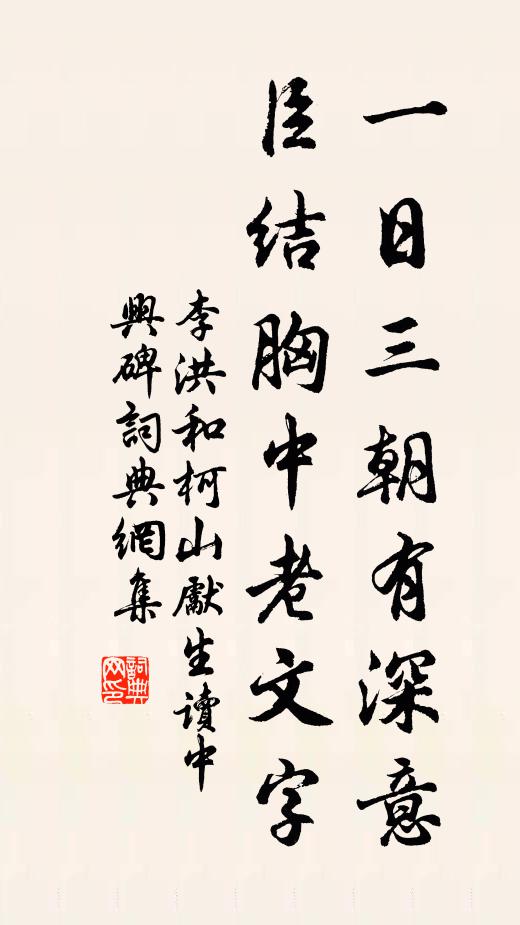 一日三朝有深意
臣結胸中老文字
李洪和柯山獻生讀中
興碑詞典網集
詞典网印